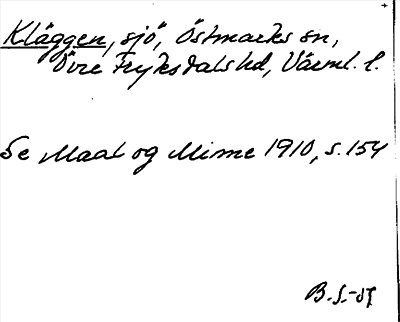 Kläggen, sjö, Östmarks sn,
Övre Fryksdals hd, Värml. l.
Se Maal og Minne 1910, s. 154